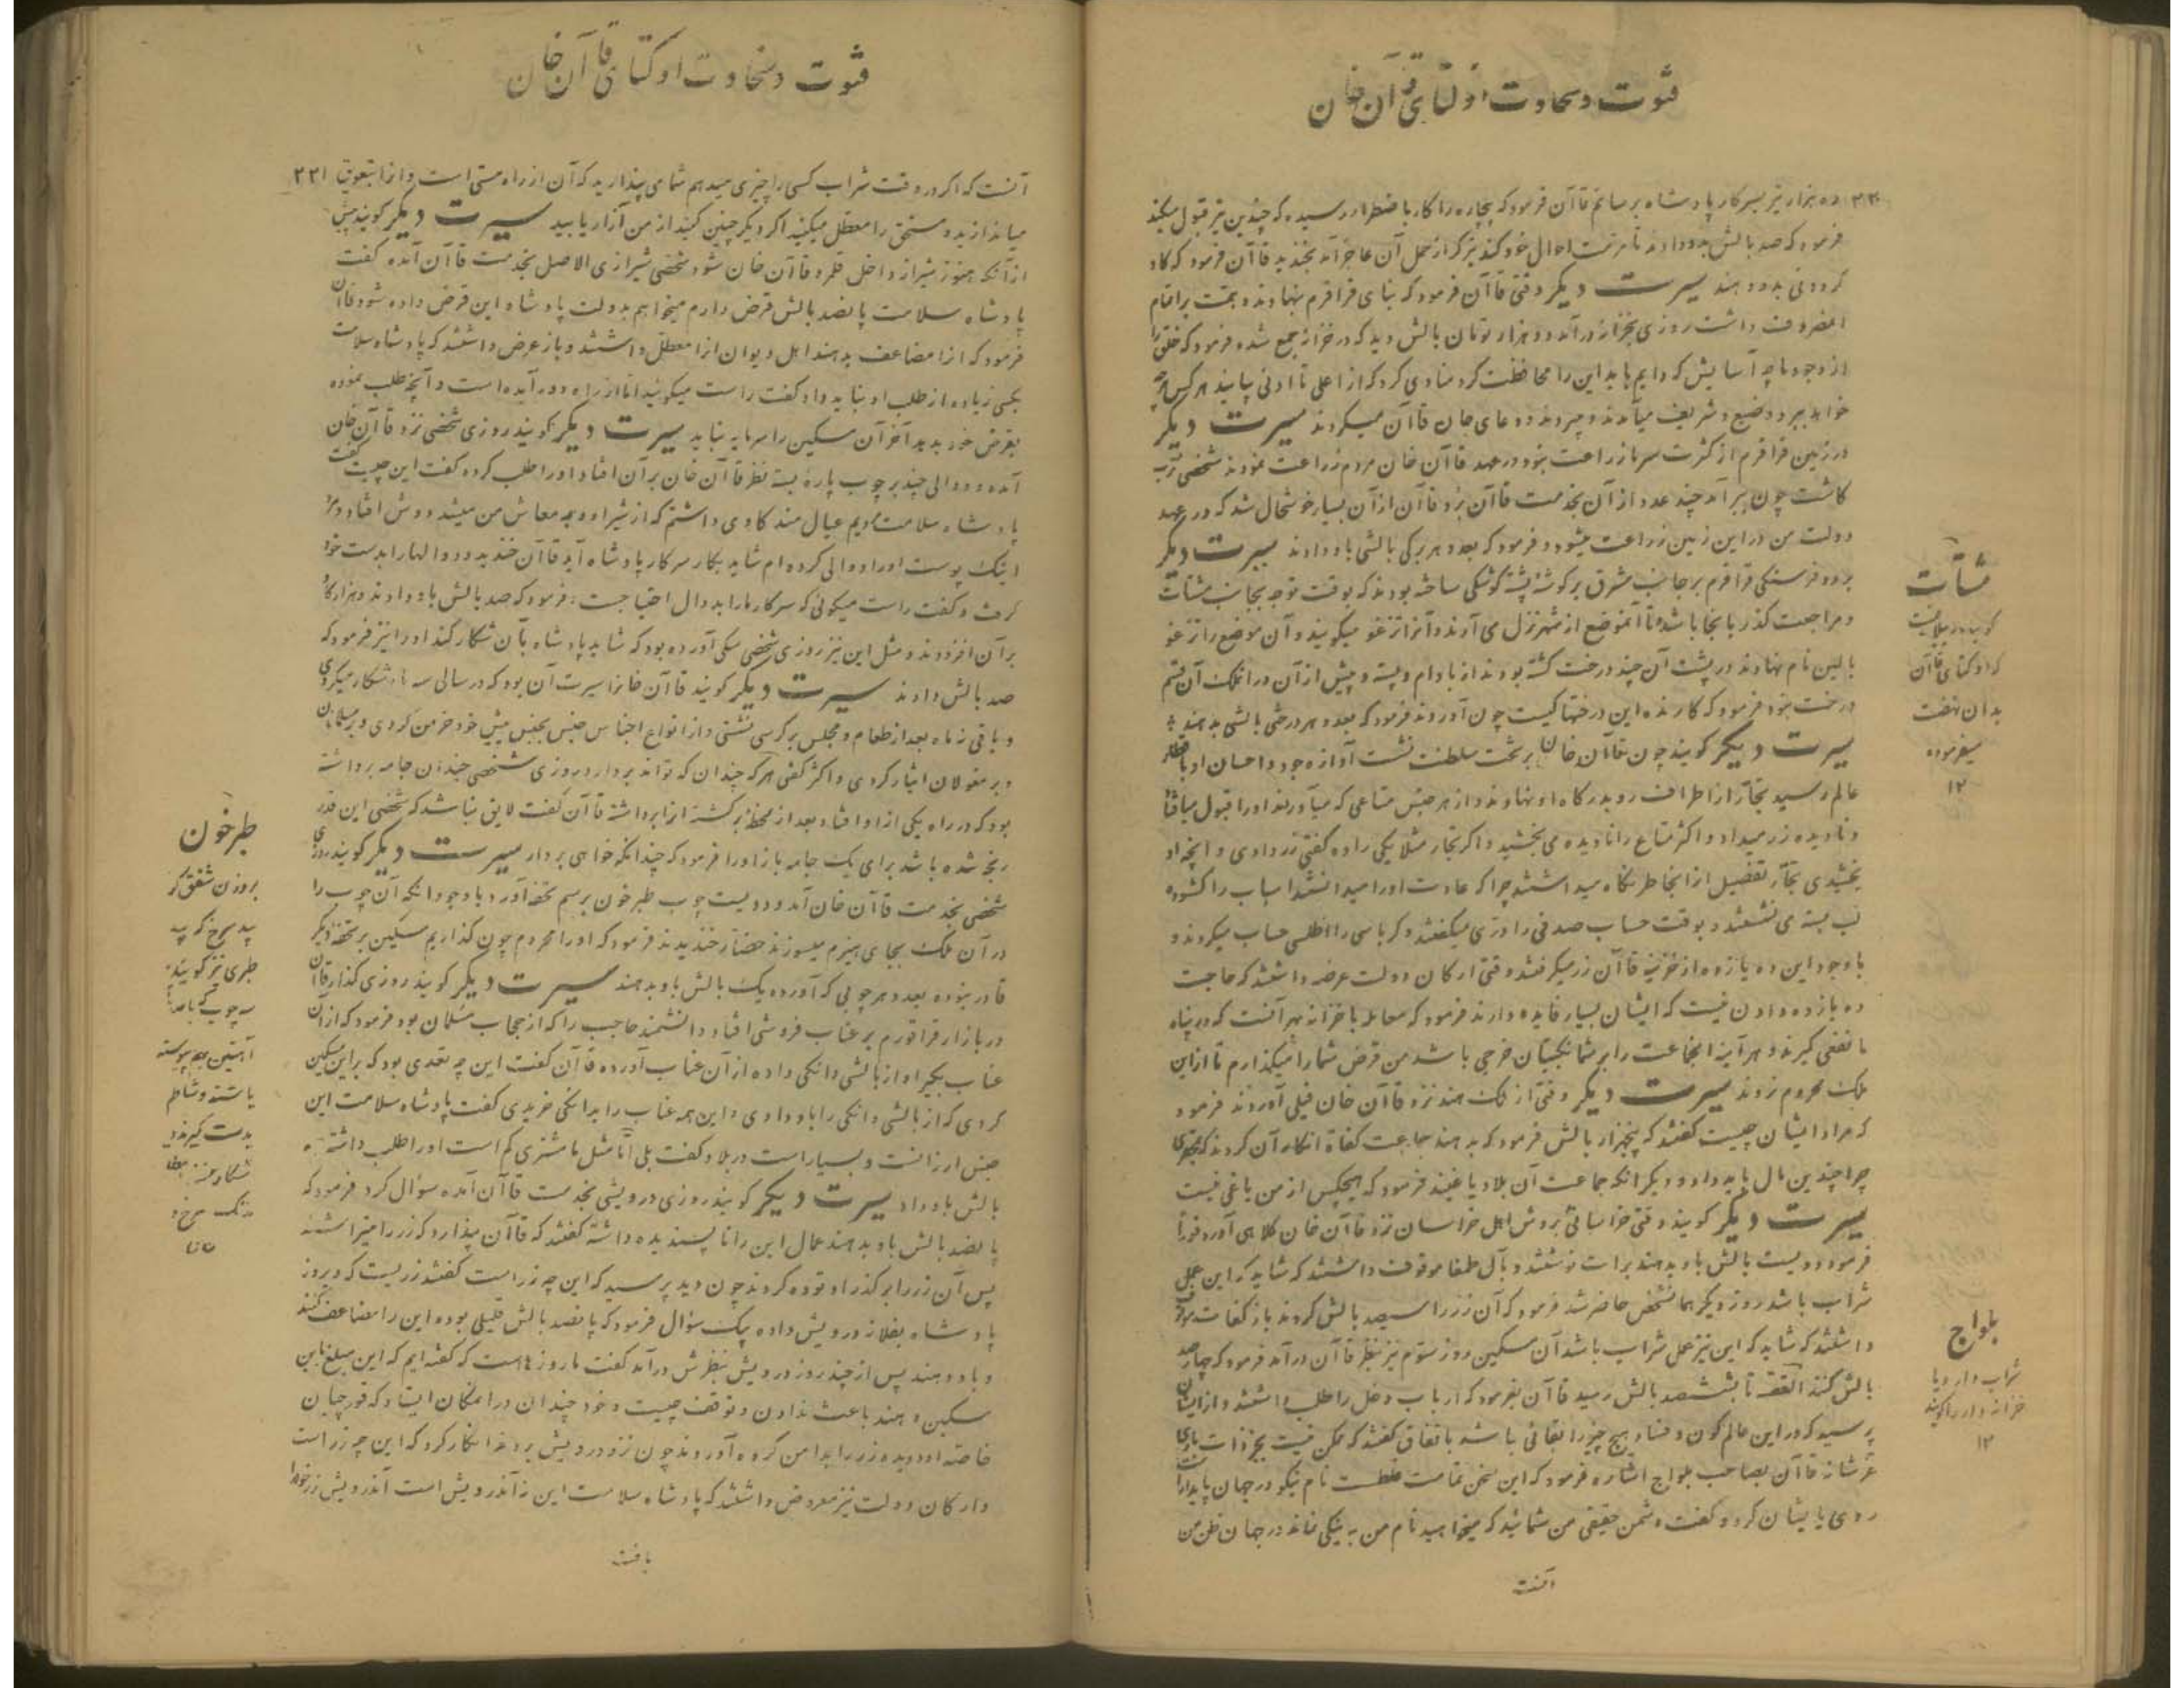 فتوت و سخاوت اوکتای قاآن خان
۲۳۰ ده هزار تیر بسرکار پادشاه برسانم قاآن فرمود که بیچاره را کار باضطرار رسیده که چندین تیر قبول میکند
فرمود که صد بالش بدو دادند تا مرمت احوال خود کند تیرگر از حمل آن عاجز آمد بخندید قاآن فرمود که گاو
گردونی بدو دهند سیرت دیگر وقتی قاآن فرمود که بنای قراقرم نهادند و همت بر اتمام
مصروف داشت روزی بخزانه درآمد دو هزار تومان بالش دید که در خزانه جمع شده فرمود که خلق را
از وجود ما چه آسایش که دایم باید این را محافظت کرد منادی کرد که از اعلی تا ادنی بیایند هر کس هرچه
خواهد ببرد وضیع و شریف میآمدند و میبردند و دعای جان قاآن میکردند سیرت دیگر
در زمین قراقرم از کثرت سرما زراعت نبود در عهد قاآن خان مردم زراعت نمودند شخصی ترب
کاشت چون ببر آمد چند عدد از آن بخدمت قاآن برد قاآن از آن بسیار خوشحال شد که در عهد
دولت من در این زمین زراعت میشود و فرمود که بعدد هر برگی بالشی باو دادند سیرت دیگر
بر دو فرسنگی قراقرم بر جانب مشرق بر گوشه پشته کوشکی ساخته بودند که بوقت توجه بجانب مشتات
و مراجعت گذر بانجا باشد تا آنموضع از شهر نزل می آرند و آنرا ترغو میگویند و آن موضع را ترغو
بالین نام نهادند در پشت آن چند درخت کشته بودند از بادام و پسته و پیش از آن در آن ملک آن قسم
درخت نبود فرمود که کارنده این درختها کیست چون آوردند فرمود که بعدد هر درختی بالشی بدهند
سیرت دیگر گویند چون قاآن خان بر تخت سلطنت نشست آوازه جود و احسان او باقطار
عالم رسید تجار از اطراف رو بدرگاه او نهادند و از هر جنس متاعی که میآوردند او را قبول میافتاد
و نادیده زر میداد و اکثر متاع را نادیده می بخشید و اگر تجار مثلا یکی را ده گفتی زر دادی و آنچه او
بخشیدی تجار تفصیل از آنجا طر نگاه میداشتند چرا که عادت او را میدانستند اسباب را گشوده
لب بسته می نشستند و بوقت حساب صدفی را دری میگفتند و کرباسی را اطلسی حساب میکردند و
با وجود این ده یازده از خزینه قاآن زر میگرفتند وقتی ارکان دولت عرضه داشتند که حاجت
ده یازده دادن نیست که ایشان بسیار فایده دارند فرمود که معامله با خزانه بهر آنست که در پناه
ما نفعی گیرند و هر آینه این جماعت را بر شما بیکبتیان خرجی باشد من قرض شما را میگذارم تا از این
ملک محروم نروند سیرت دیگر وقتی از ملک هند نزد قاآن خان فیلی آوردند فرمود
که مراد ایشان چیست گفتند که پنجهزار بالش فرمود که بدهند جماعت کفاة انکار آن کردند که بجهت
چرا چندین مال باید داد و دیگر آنکه جماعت آن بلاد یاغیند فرمود که هیچکس از من یاغی نیست
سیرت دیگر گویند وقتی خراسانی بروش اهل خراسان نزد قاآن خان کلاهی آورد فورا
فرمود دویست بالش باو بدهند برات نوشتند و بآل طمغا موقوف داشتند که شاید که این عمل
شراب باشد روز دیگر همانشخص حاضر شد فرمود که آن زر را سیصد بالش کردند باز کفات موقوف
داشتند که شاید که این نیز عمل شراب باشد آن مسکین روز سوم نیز بنظر قاآن درآمد فرمود که چهارصد
بالش کنند القصه تا بششصد بالش رسید قاآن بفرمود که ارباب دخل را طلب داشتند و از ایشان
پرسید که در این عالم کون و فساد هیچ چیز را بقائی باشد باتفاق گفتند که ممکن نیست بجز ذات باری
عز شانه قاآن بصاحب یلواج اشاره فرمود که این سخن تمامت غلطست نام نیکو در جهان پایدار است
روی بایشان کرد و گفت دشمن حقیقی من شمائید که میخواهید نام من به نیکی نماند در جهان ظن من
آنست
مشتات
گویند ییلاقیست
که اوکتای قاآن
بدان نهضت
میفرموده
۱۲
یلواج
شراب دار و یا
خزانه دار را گویند
۱۲
فتوت و سخاوت اوکتای قاآن خان
آنست که اگر در وقت شراب کسی را چیزی میدهم شما می پندارید که آن از راه مستی است و آنرا بتعویق ۲۳۱
میاندازید و مستحق را معطل میکنید اگر دیگر چنین کنید از من آزار یابید سیرت دیگر گویند پیش
از آنکه هنوز شیراز داخل قلمرو قاآن خان شود شخصی شیرازی الاصل بخدمت قاآن آمده گفت
پادشاه سلامت پانصد بالش قرض دارم میخواهم بدولت پادشاه این قرض داده شود قاآن
فرمود که آنرا مضاعف بدهند اهل دیوان آنرا معطل داشتند و باز عرض داشتند که پادشاه سلامت
بکسی زیاده از طلب او نباید داد گفت راست میگوئید اما از راه دور آمده است و آنچه طلب نموده
بقرض خود بدهد آخر آن مسکین را سرمایه نباید سیرت دیگر گویند روزی شخصی نزد قاآن خان
آمده و دوالی چند بر چوب پاره بسته نظر قاآن خان بر آن افتاد او را طلب کرده گفت این چیست گفت
پادشاه سلامت مردیم عیال مند گاوی داشتم که از شیر او وجه معاش من میشد دوش افتاد و مرد
اینک پوست او را دوالی کرده ام شاید بکار سرکار پادشاه آید قاآن خندید و دوالها را بدست خود
گرفت و گفت راست میگوئی که سرکار ما را بدوال احتیاجست فرمود که صد بالش باو دادند و هزار گاو
بر آن افزودند و مثل این نیز روزی شخصی سگی آورده بود که شاید پادشاه بآن شکار کند او را نیز فرمود که
صد بالش دادند سیرت دیگر گویند قاآن خانرا سیرت آن بود که در سالی سه ماه شکار میکردی
و باقی نه ماه بعد از طعام و مجلس بر کرسی نشستی و از انواع اجناس جنس بجنس پیش خود خرمن کردی و بر مسلمانان
و بر مغولان ایثار کردی و اکثر گفتی هر که چندان که تواند بردارد روزی شخصی چندان جامه برداشته
بود که در راه یکی از او افتاد بعد از لحظه برگشته آنرا برداشته قاآن گفت لایق نباشد که شخصی این قدر
رنجه شده باشد برای یک جامه باز او را فرمود که چندانکه خواهی بردار سیرت دیگر گویند روزی
شخصی بخدمت قاآن خان آمد و دویست چوب طبرخون برسم تحفه آورد با وجود آنکه آن چوب را
در آن ملک بجای هیزم میسوزند حضار خندیدند فرمود که او را محروم چون گذاریم مسکین بر تحفه دیگر
قادر نبوده بعدد هر چوبی که آورده یک بالش باو بدهند سیرت دیگر گویند روزی گذار قاآن
در بازار قراقورم بر عناب فروشی افتاد دانشمند حاجب را که از حجاب مسلمان بود فرمود که از آن
عناب بگیر او از بالشی دانگی داده از آن عناب آورده قاآن گفت این چه تعدی بود که بر این مسکین
کردی که از بالشی دانگی را باو دادی و این همه عناب را بدانگی خریدی گفت پادشاه سلامت این
جنس ارزانست و بسیار است در بلاد گفت بلی اما مثل ما مشتری کم است او را طلب داشته ده
بالش باو داد سیرت دیگر گویند روزی درویشی بخدمت قاآن آمده سؤال کرد فرمود که
پانصد بالش باو بدهند عمال این را ناپسندیده داشته گفتند که قاآن پندارد که زر را میتراشند
پس آن زر را بر گذر او توده کردند چون دید پرسید که این چه زر است گفتند زریست که دیروز
پادشاه بفلان درویش داده بیک سؤال فرمود که پانصد بالش قلیلی بوده این را مضاعف کنند
و باو دهند پس از چند روز درویش بنظرش درآمد گفت ما روزهاست که گفته ایم که این مبلغ باین
مسکین دهند باعث ندادن و توقف چیست و خود چندان در آنمکان ایستاد که قورچیان
خاصه او دویده زر را بدامن کرده آوردند چون نزد درویش بردند انکار کرد که این چه زر است
و ارکان دولت نیز معروض داشتند که پادشاه سلامت این نه آندرویش است آندرویش زر خود را
یافت
طبرخون
بروزن شفق گون
بید سرخ که بید
طبری نیز گویند